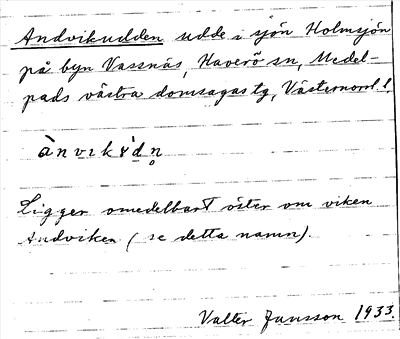 Andvikudden udde i sjön Holmsjön
på byn Vassnäs, Haverö sn, Medel-
pads västra domsagas tg, Västernorrl. l.
Ligger omedelbart öster om viken
Andviken (se detta namn).
Valter Jansson 1933.